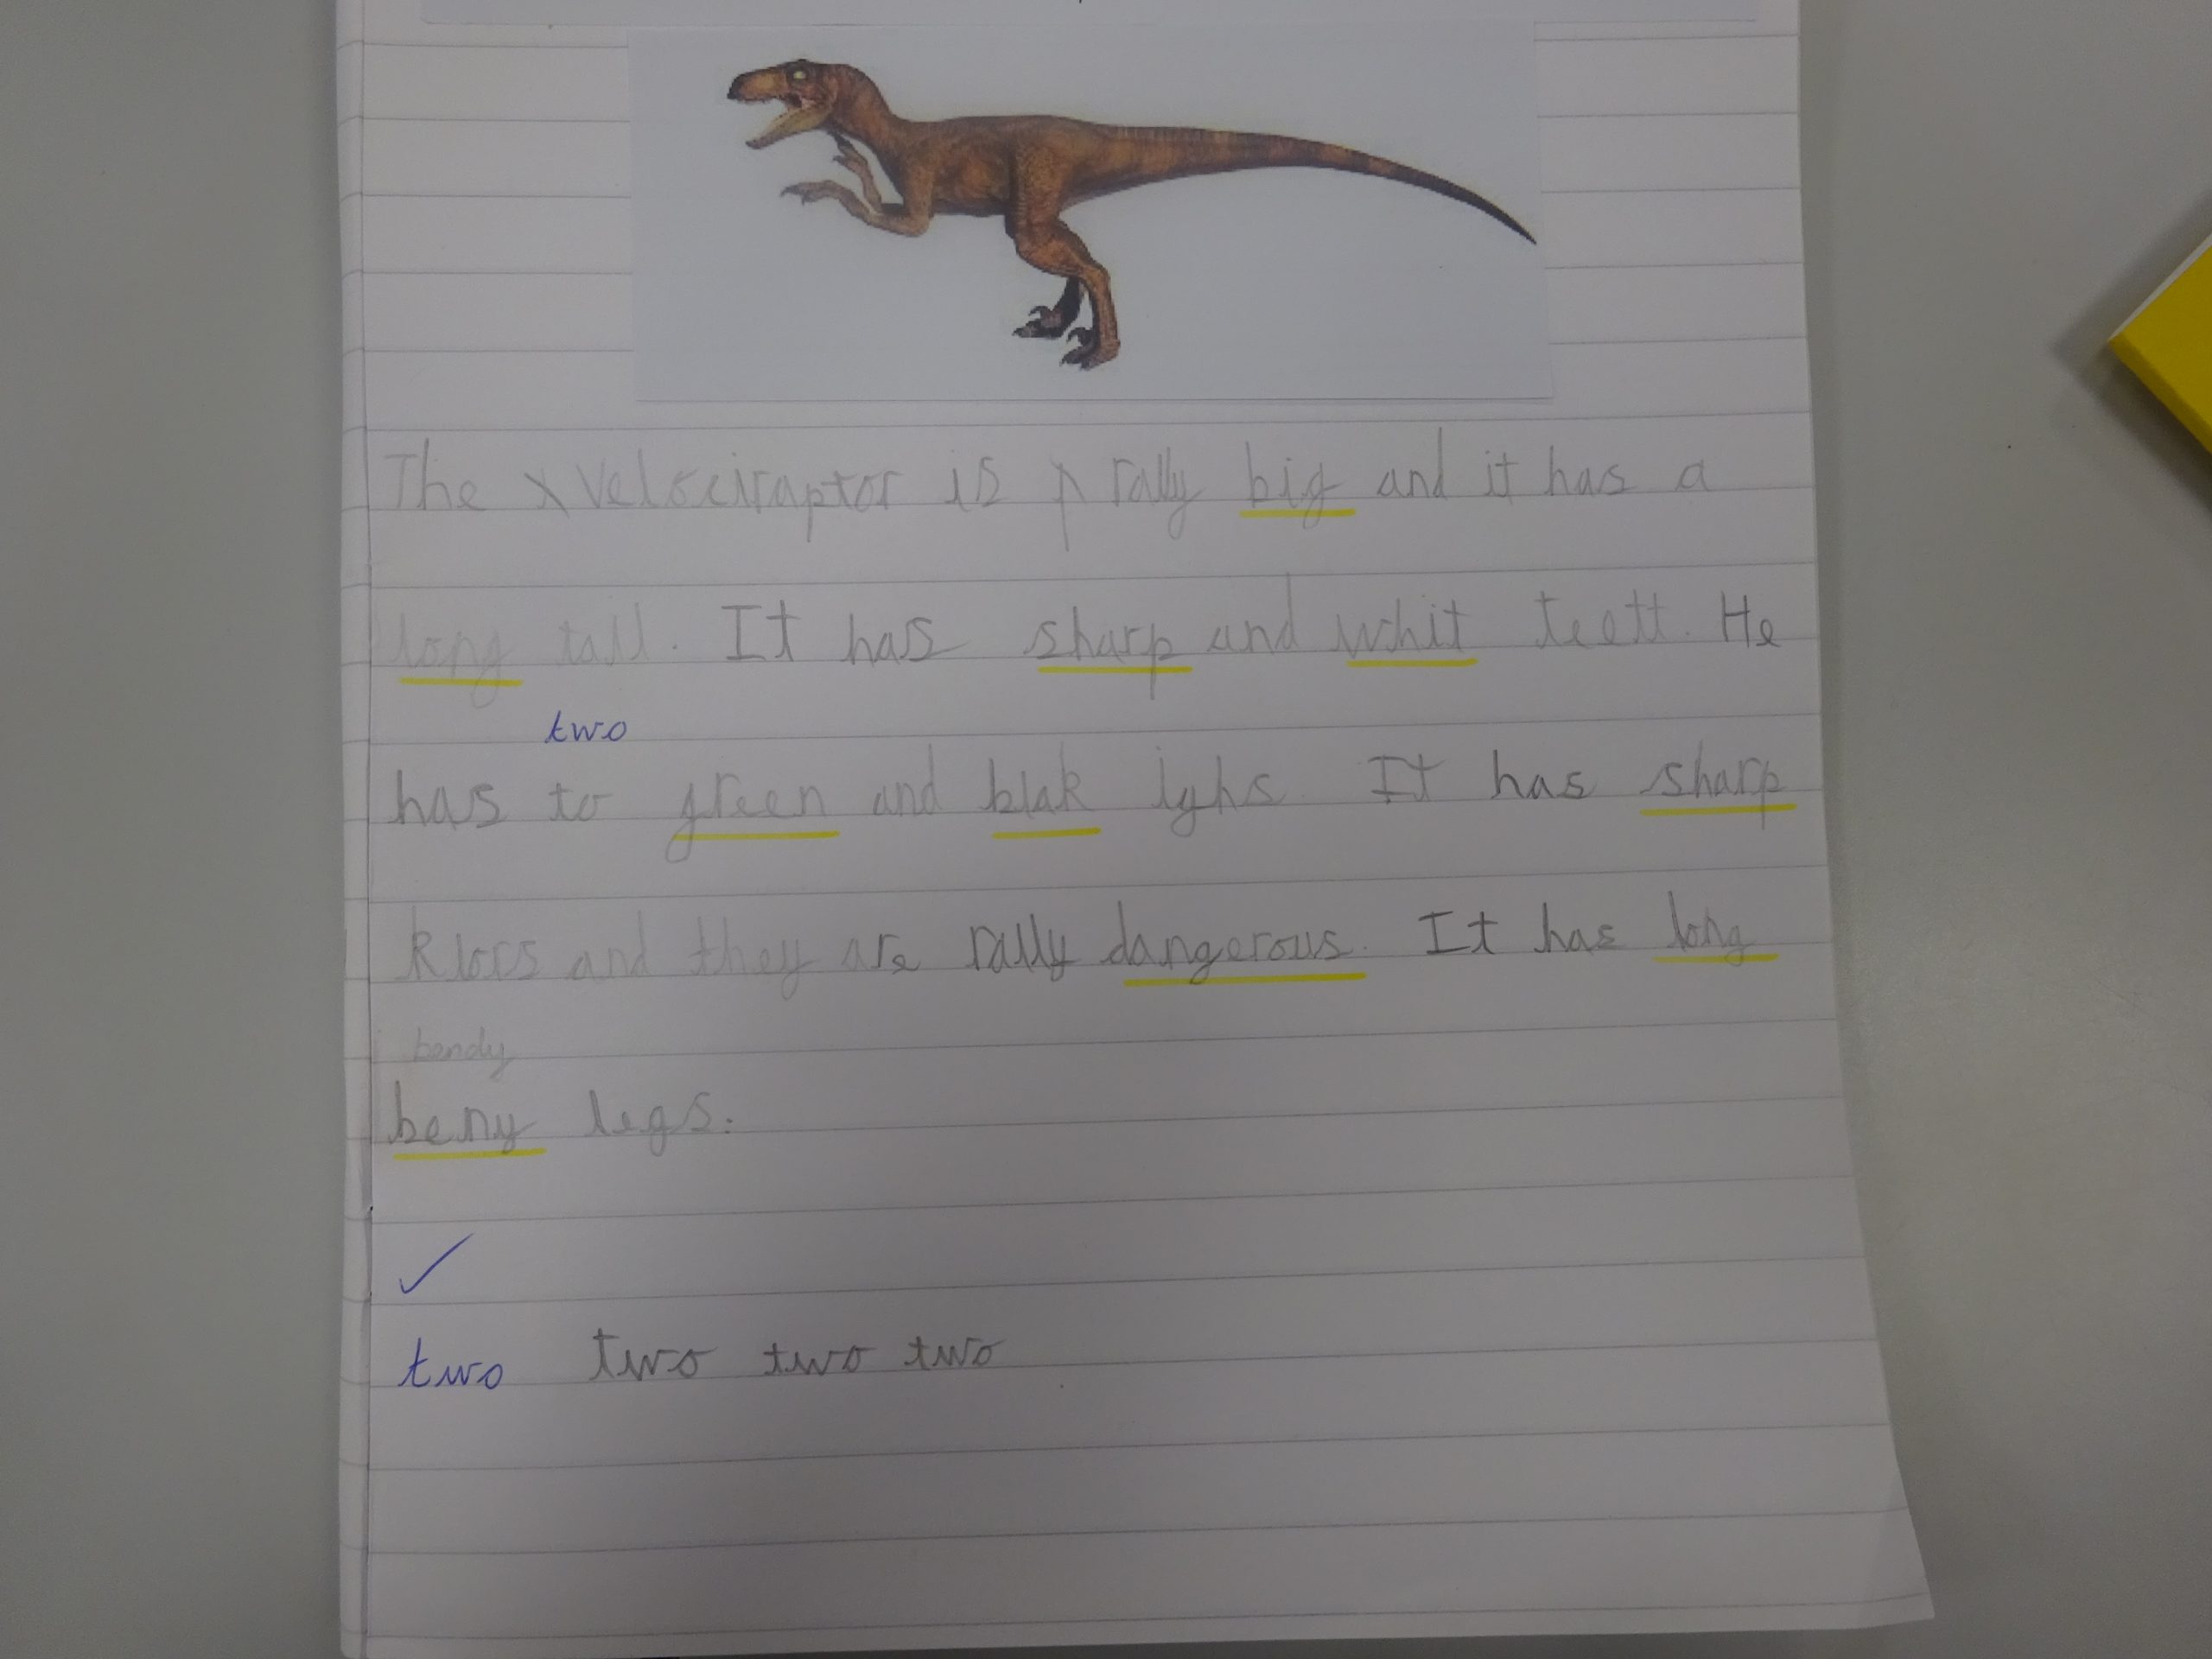 The Velociraptor is rally big and it has a
long tall. It has sharp and whit teett. He
two
has to green and blak ighs. It has sharp
klors and they are rally dangerous. It has long
bendy
beny legs.
two two two two